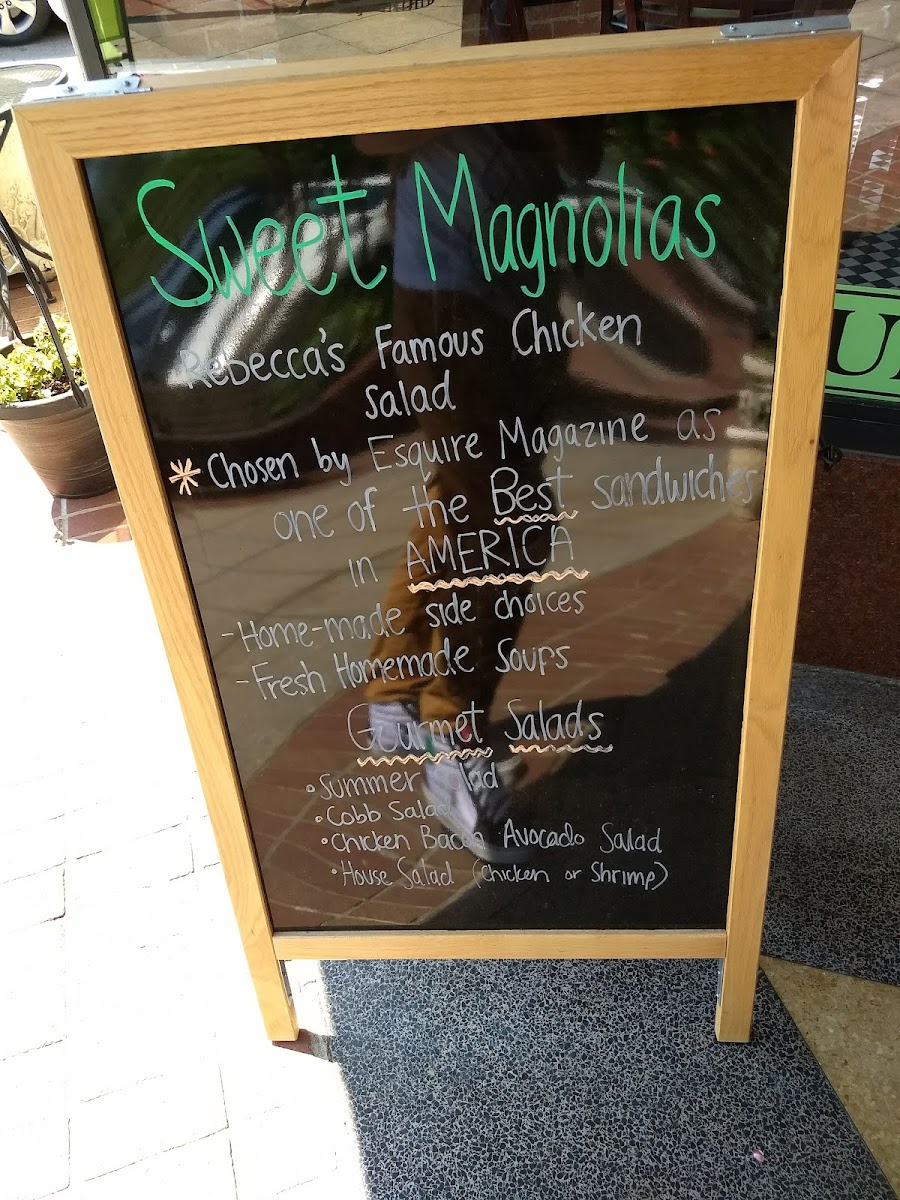 Sweet Magnolias
Rebecca's Famous Chicken
Salad
* Chosen by Esquire Magazine as
one of the Best sandwiches
in AMERICA
- Home-made side choices
- Fresh Homemade Soups
Gourmet Salads
• Summer Salad
• Cobb Salad
• Chicken Bacon Avocado Salad
• House Salad (Chicken or Shrimp)